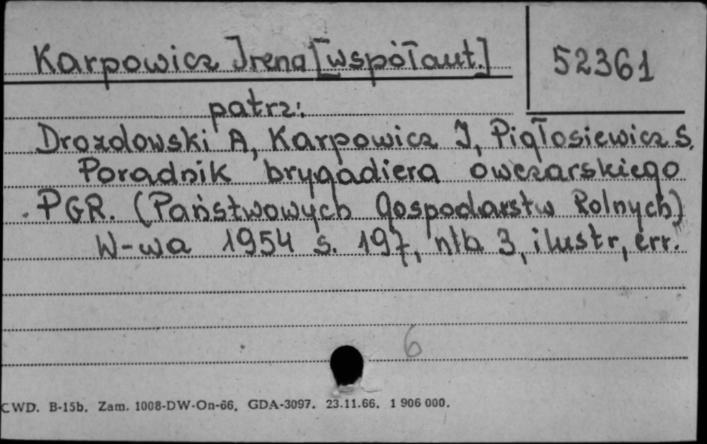 Karpowicz Irena [współaut.]
52361
patrz:
Drozdowski A, Karpowicz I, Piątosiewicz S.
Poradnik brygadiera owczarskiego
PGR. (Państwowych Gospodarstw Rolnych)
W-wa 1954 s. 197, nlb 3, ilustr, err.
6
CWD. B-15b. Zam. 1008-DW-On-66. GDA-3097. 23.11.66. 1 906 000.